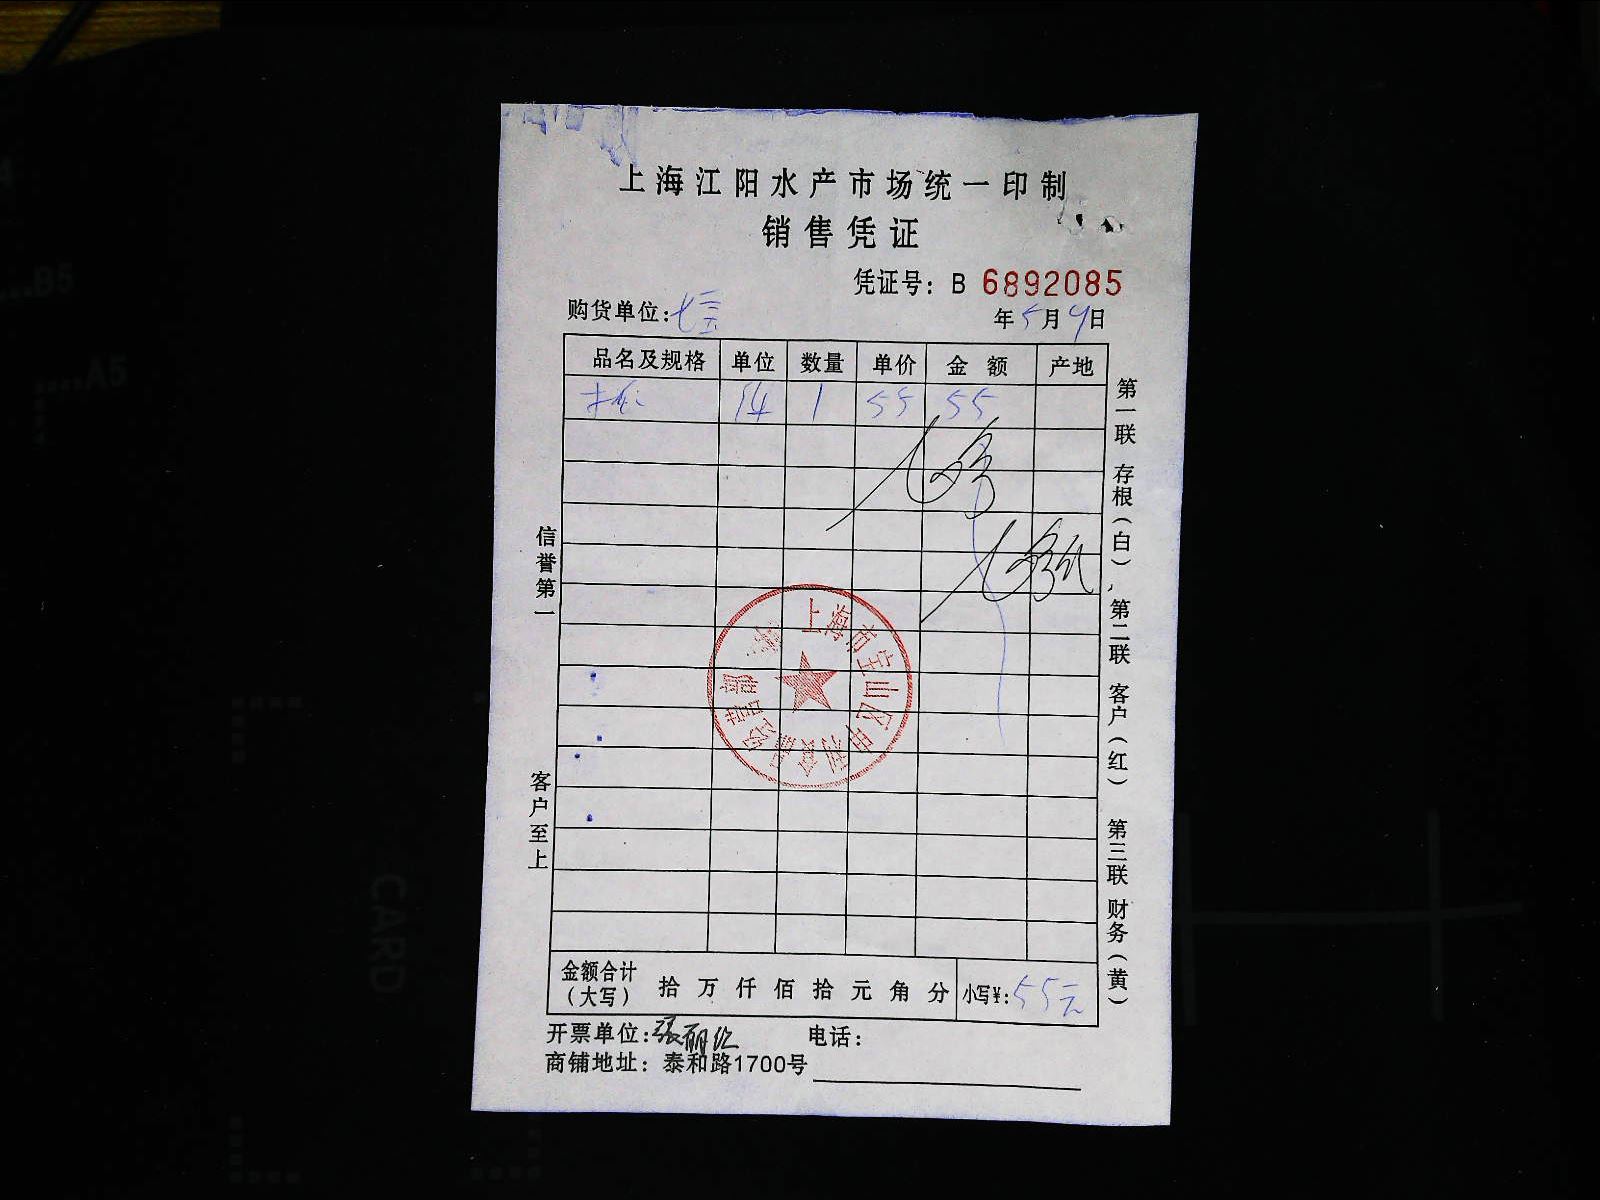 上海江阳水产市场统一印制
销售凭证
凭证号：B 6892085
购货单位：七宝
年5月9日
品名及规格 单位 数量 单价 金额 产地
1 55 55
信誉第一
客户至上
第一联 存根（白）、第二联 客户（红） 第三联 财务（黄）
上海市宝山区
金额合计（大写） 拾 万 仟 佰 拾 元 角 分 小写¥：55元
开票单位：张丽红 电话：
商铺地址：泰和路1700号
B5
A5
CARD